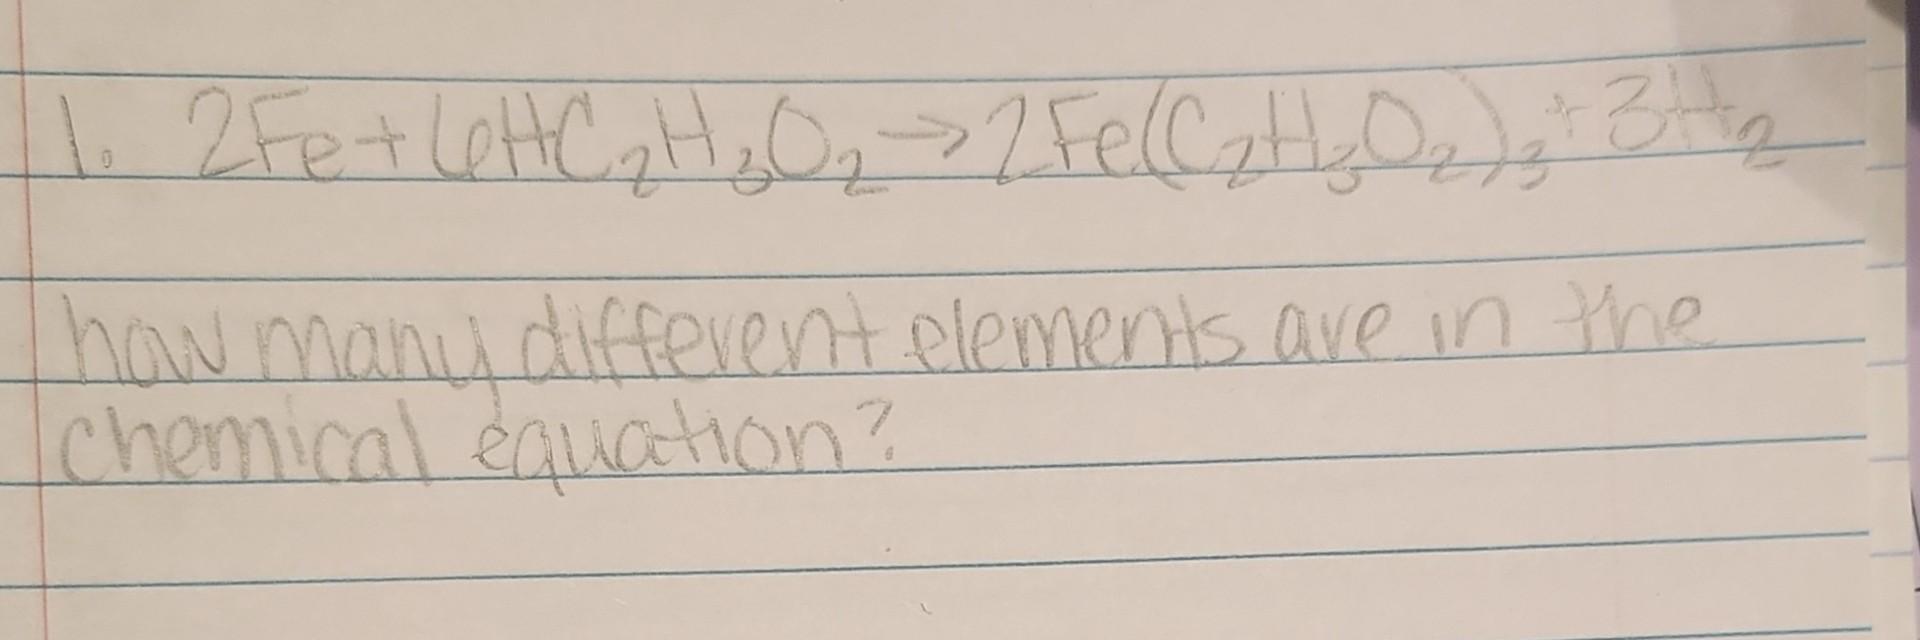 1. 2Fe + 6HC₂H₃O₂ → 2Fe(C₂H₃O₂)₃ + 3H₂
how many different elements are in the
chemical equation?